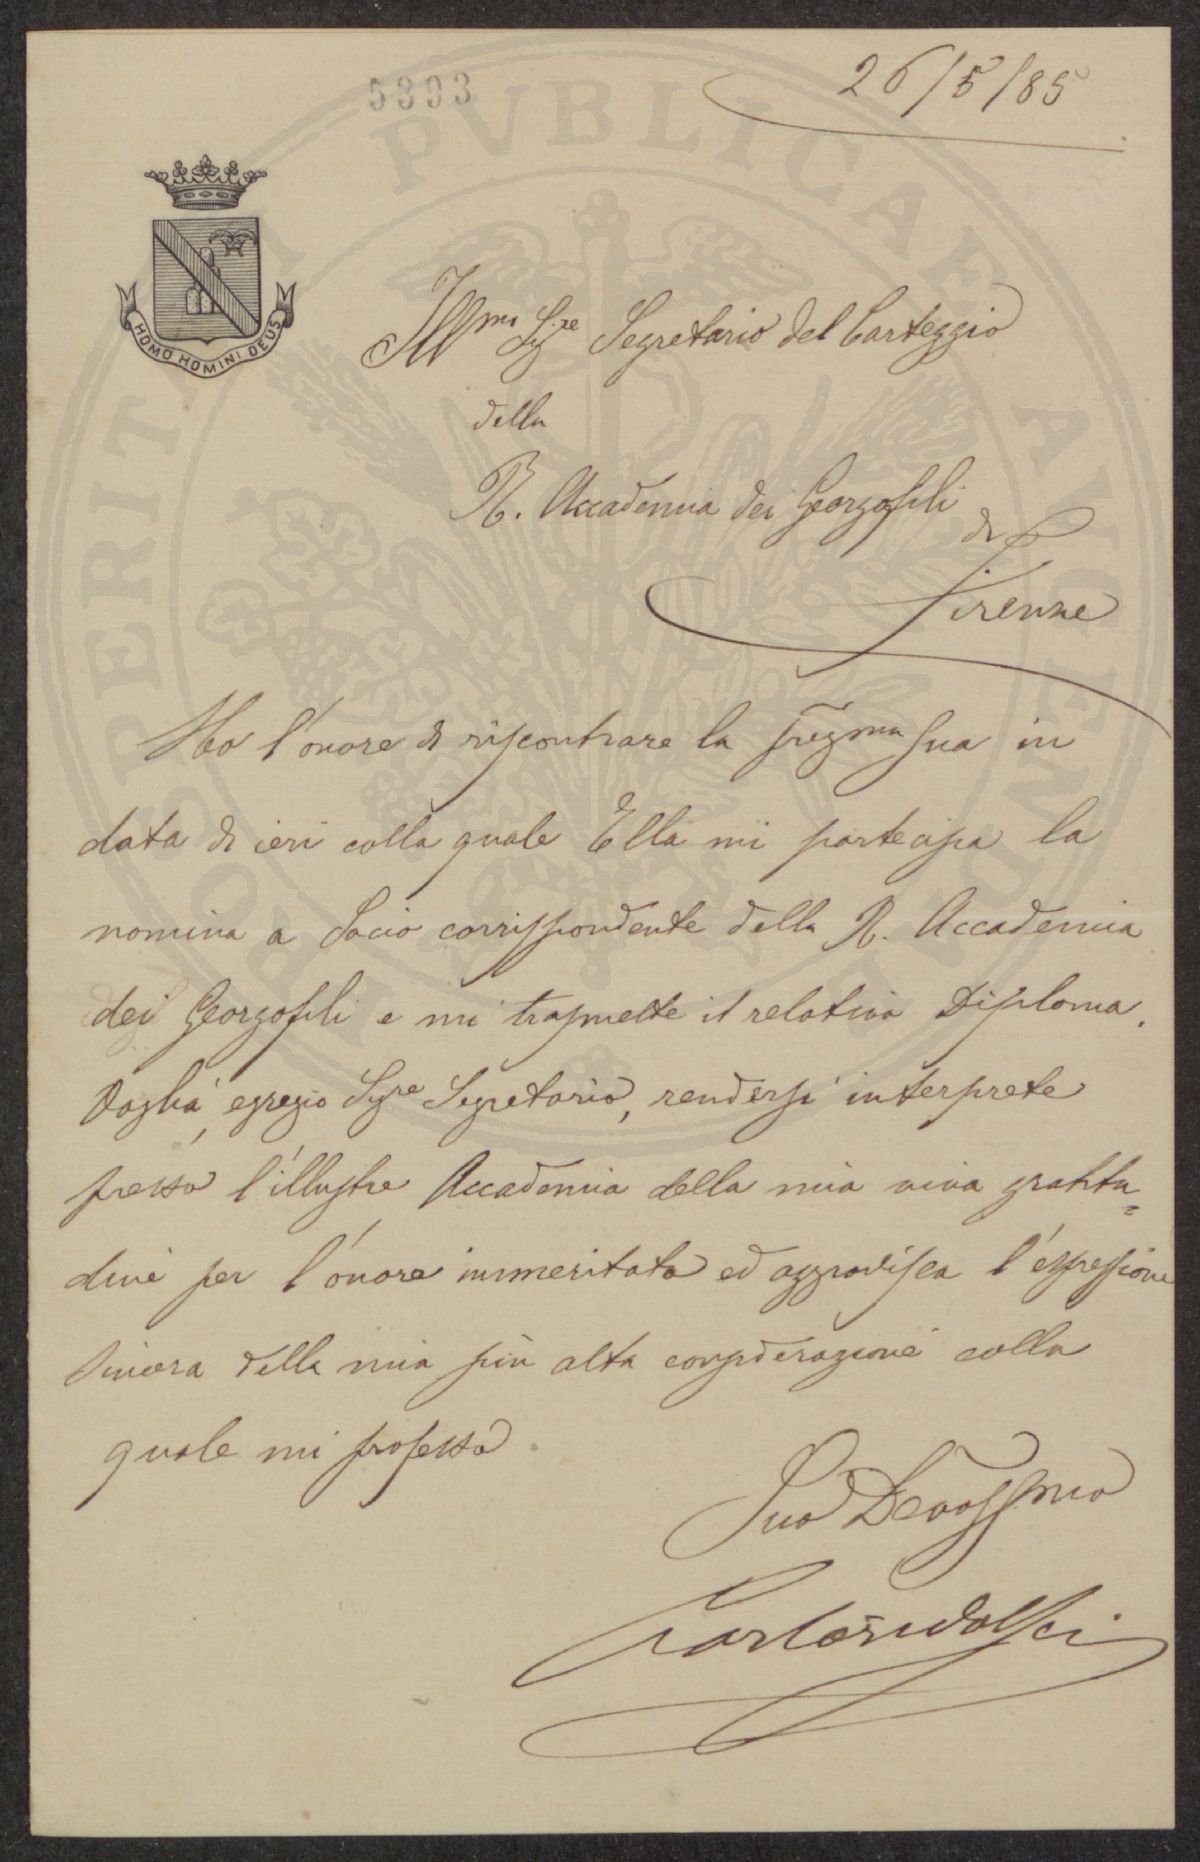 5393
26/5/85
HOMO HOMINI DEUS
Ill.mo Sig.re Segretario del Carteggio
della
R. Accademia dei Georgofili
di
Firenze
Ho l'onore di riscontrare la preg.ma sua in
data di ieri colla quale Ella mi partecipa la
nomina a Socio corrispondente della R. Accademia
dei Georgofili e mi trasmette il relativo Diploma.
Voglia, egregio Sig.re Segretario, rendersi interprete
presso l'illustre Accademia della mia viva gratitu=
dine per l'onore immeritato ed aggradisca l'espressione
sincera della mia più alta considerazione colla
quale mi professo.
Suo Devotissmo
PROSPERITATI PVBLICAE AVGENDAE